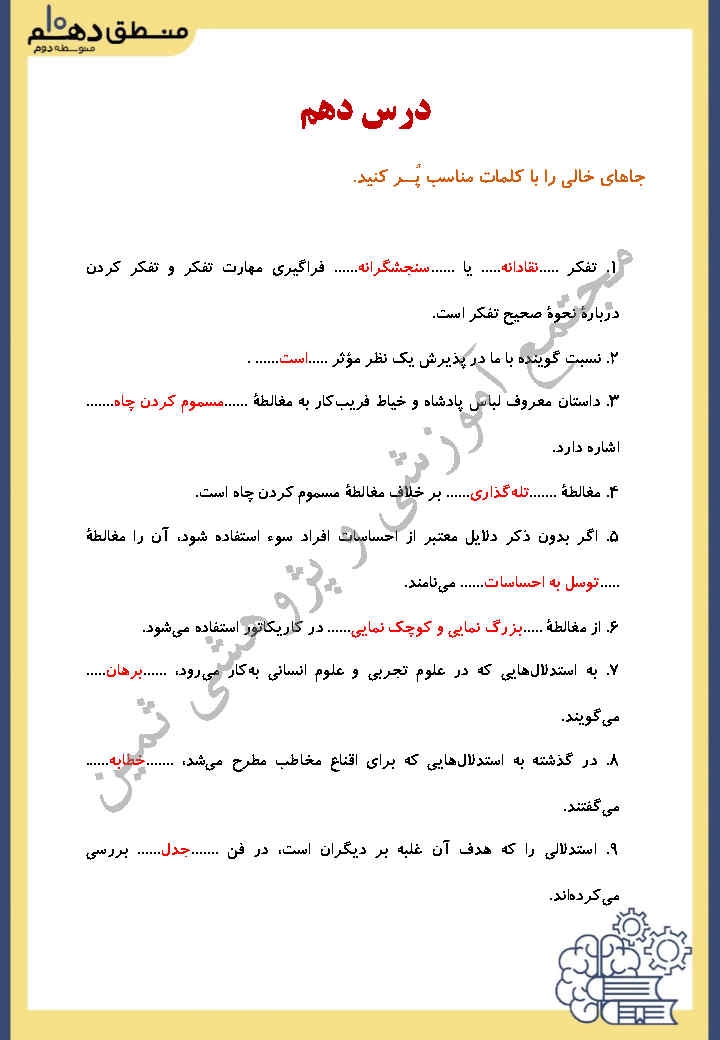 منطق دهم ۱۰
متوسطه دوم
درس دهم
جاهای خالی را با کلمات مناسب پُـر کنید.
۱. تفکر .....نقادانه..... یا ......سنجشگرانه...... فراگیری مهارت تفکر و تفکر کردن
دربارهٔ نحوهٔ صحیح تفکر است.
۲. نسبت گوینده با ما در پذیرش یک نظر مؤثر .....است...... .
۳. داستان معروف لباس پادشاه و خیاط فریب‌کار به مغالطهٔ ......مسموم کردن چاه.......
اشاره دارد.
۴. مغالطهٔ .......تله‌گذاری...... بر خلاف مغالطهٔ مسموم کردن چاه است.
۵. اگر بدون ذکر دلایل معتبر از احساسات افراد سوء استفاده شود، آن را مغالطهٔ
.....توسل به احساسات...... می‌نامند.
۶. از مغالطهٔ .....بزرگ نمایی و کوچک نمایی...... در کاریکاتور استفاده می‌شود.
۷. به استدلال‌هایی که در علوم تجربی و علوم انسانی به‌کار می‌رود، ......برهان.....
می‌گویند.
۸. در گذشته به استدلال‌هایی که برای اقناع مخاطب مطرح می‌شد، .......خطابه......
می‌گفتند.
۹. استدلالی را که هدف آن غلبه بر دیگران است، در فن .......جدل...... بررسی
می‌کرده‌اند.
مجتمع آموزشی و پژوهشی ثمین